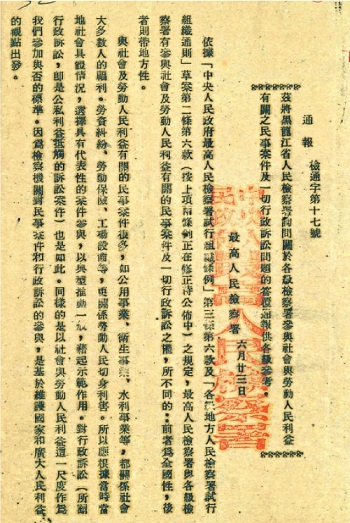 通報　檢通字第十七號
茲將黑龍江省人民檢察署詢問關於各級檢察署參與社會與勞動人民利益
有關之民事案件及一切行政訴訟問題的答覆通報供各級參考。
最高人民檢察署
六月廿三日
依據「中央人民政府最高人民檢察署試行組織條例」第三條第六款及「各級地方人民檢察署試行
組織通則」草案第二條第六款（按上項兩條例正在修正待公佈中）之規定，最高人民檢察署與各級檢
察署有參與社會及勞動人民利益有關的民事案件及一切行政訴訟之權，所不同的：前者爲全國性，後
者則帶地方性。
與社會及勞動人民利益有關的民事案件很多，如公用事業、衛生事業、水利事業等，都關係社會
大多數人的福利。勞資糾紛、勞動保險、工礦設備等，更關係勞動人民切身利害。所以應根據當時當
地社會具體情況，選擇具有代表性的案件參與，以典型推動一般，藉起示範作用。對行政訴訟（所謂
行政訴訟，即是公私利益抵觸的訴訟案件）也是如此。同樣的是以社會與勞動人民利益這一尺度作爲
我們參加與否的標準。因爲檢察機關對民事案件和行政訴訟的參與，是基於維護國家和廣大人民利益
的觀點出發。